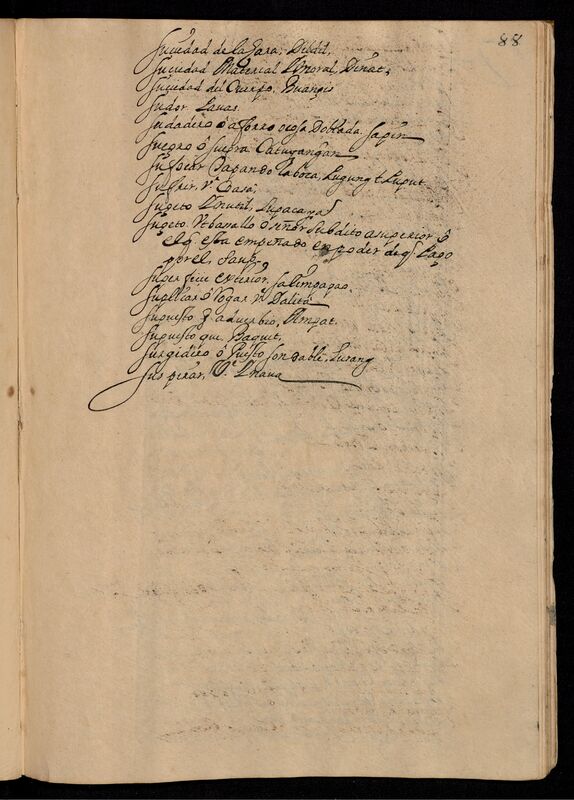 88
Suciedad de la Cara, Dildil,
Suciedad Material Ymoral, Dinat,
Suciedad del Cuerpo, Buangis
Sudor. Lauas
Sudadero ô aforro cosa Doblada. sapin
Suegro ô suegra Catuyangan
la boca, Lugung t. Luput
Sufrir, V. Casa,
Sugeto Ynutil, Lapacana
Sugeto Vt banallo ô señor Subdito a superior ô
el q. esta empeñado en poder de q. Pago
por el, Sang
Superficie exterior, salimpapao
Suplicar ô Rogar V. Dalita
Supuesto q. aduerbio, Ampat.
Supuesto que, Baquit,
Surgidero ô Puesto sondable, Lusang
Suspirar, V. Ynaua